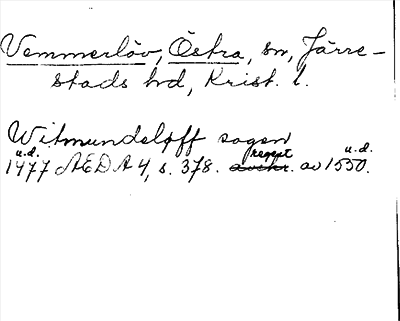 Vemmerlöv, Östra, sn, Järre-
stads hd, Krist. l.
Witmundsløff sogen
u.d. regest u.d.
1477 ÆDA 4, s. 378. avskr. av 1550.